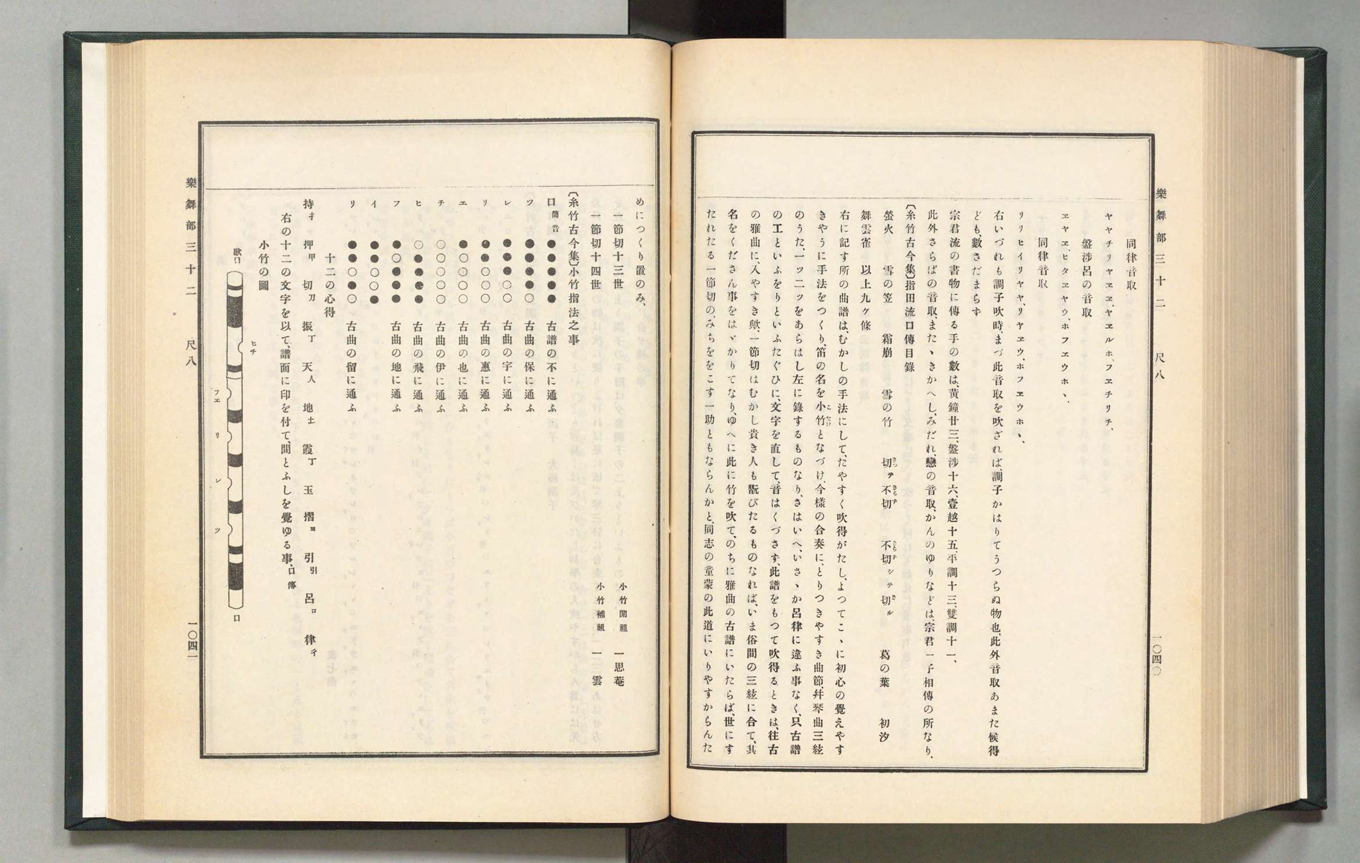 樂舞部三十二 尺八
一〇四〇
同律音取
ヤヤチリヤヱヱ、ヤヱルホ、フヱチリチ、
盤渉呂の音取
ヱヤヱ、ヒタヱヤウ、ホフヱウホヽ、
同律音取
リリヒイリヤヤ、リヤヱウ、ホフヱウホヽ、
右いづれも調子吹時、まづ此音取を吹ざれば、調子かはりてうつらぬ物也、此外音取あまた候得
ども、數さだまらず
宗君流の書物に傳る手の數は、黄鐘廿三、盤渉十六、壹越十五、平調十三、雙調十一、
此外さらばの音取、またヽきかへし、みだれ戀の音取、かんのゆりなどは、宗君一子相傳の所なり、
〔糸竹古今集〕指田流口傳目錄
螢火 雪の笠 霜崩 雪の竹 切テ不切 不切シテ切ル 葛の葉 初汐
舞雲雀 以上九ケ條
右に記す所の曲譜は、むかしの手法にして、たやすく吹得がたし、よつてこヽに初心の覺えやす
きやうに手法をつくり、笛の名を小竹となづけ、今樣の合奏に、とりつきやすき曲節、幷琴曲三絃
のうた、一ツ二ツをあらはし左に錄するものなり、さはいへ、いさヽか呂律に違ふ事なく、只古譜
の工といふをりといふたぐひに、文字を直して、音はくづさず、此譜をもつて吹得るときは、往古
の雅曲に入やすき歟、一節切はむかし貴き人も翫びたるものなれば、いま俗間の三絃に合て、其
名をくださん事をはヾかりてなり、ゆへに此に竹を吹て、のちに雅曲の古譜にいたらば、世にす
たれたる一節切のみちををこす一助ともならんかと、同志の童蒙の此道にいりやすからんた
めにつくり置のみ、
一節切十三世 小竹開祖 一思菴
一節切十四世 小竹補祖 一雲
〔糸竹古今集〕小竹指法之事
口筒音 ●●●●● 古譜の不に通ふ
ツ ●●●●○ 古曲の保に通ふ
レ ●●●○○ 古曲の宇に通ふ
リ ●●○○○ 古曲の惠に通ふ
ヱ ●○○○○ 古曲の也に通ふ
チ ○○○○○ 古曲の伊に通ふ
ヒ ○●●●● 古曲の飛に通ふ
フ ●○●●● 古曲の地に通ふ
イ ●●○○●
リ ●●○●○ 古曲の留に通ふ
十二の心得
持オ 押甲 切刀 振丁 天人 地土 霞丁 玉 摺ヨ 引引 呂ロ 律イ
右の十二の文字を以て、譜面に印を付て、間とふしを覺ゆる事、口傳
小竹の圖
歌口
ヒチ
フヱ
リ
レ
ツ
口
樂舞部三十二 尺八
一〇四一